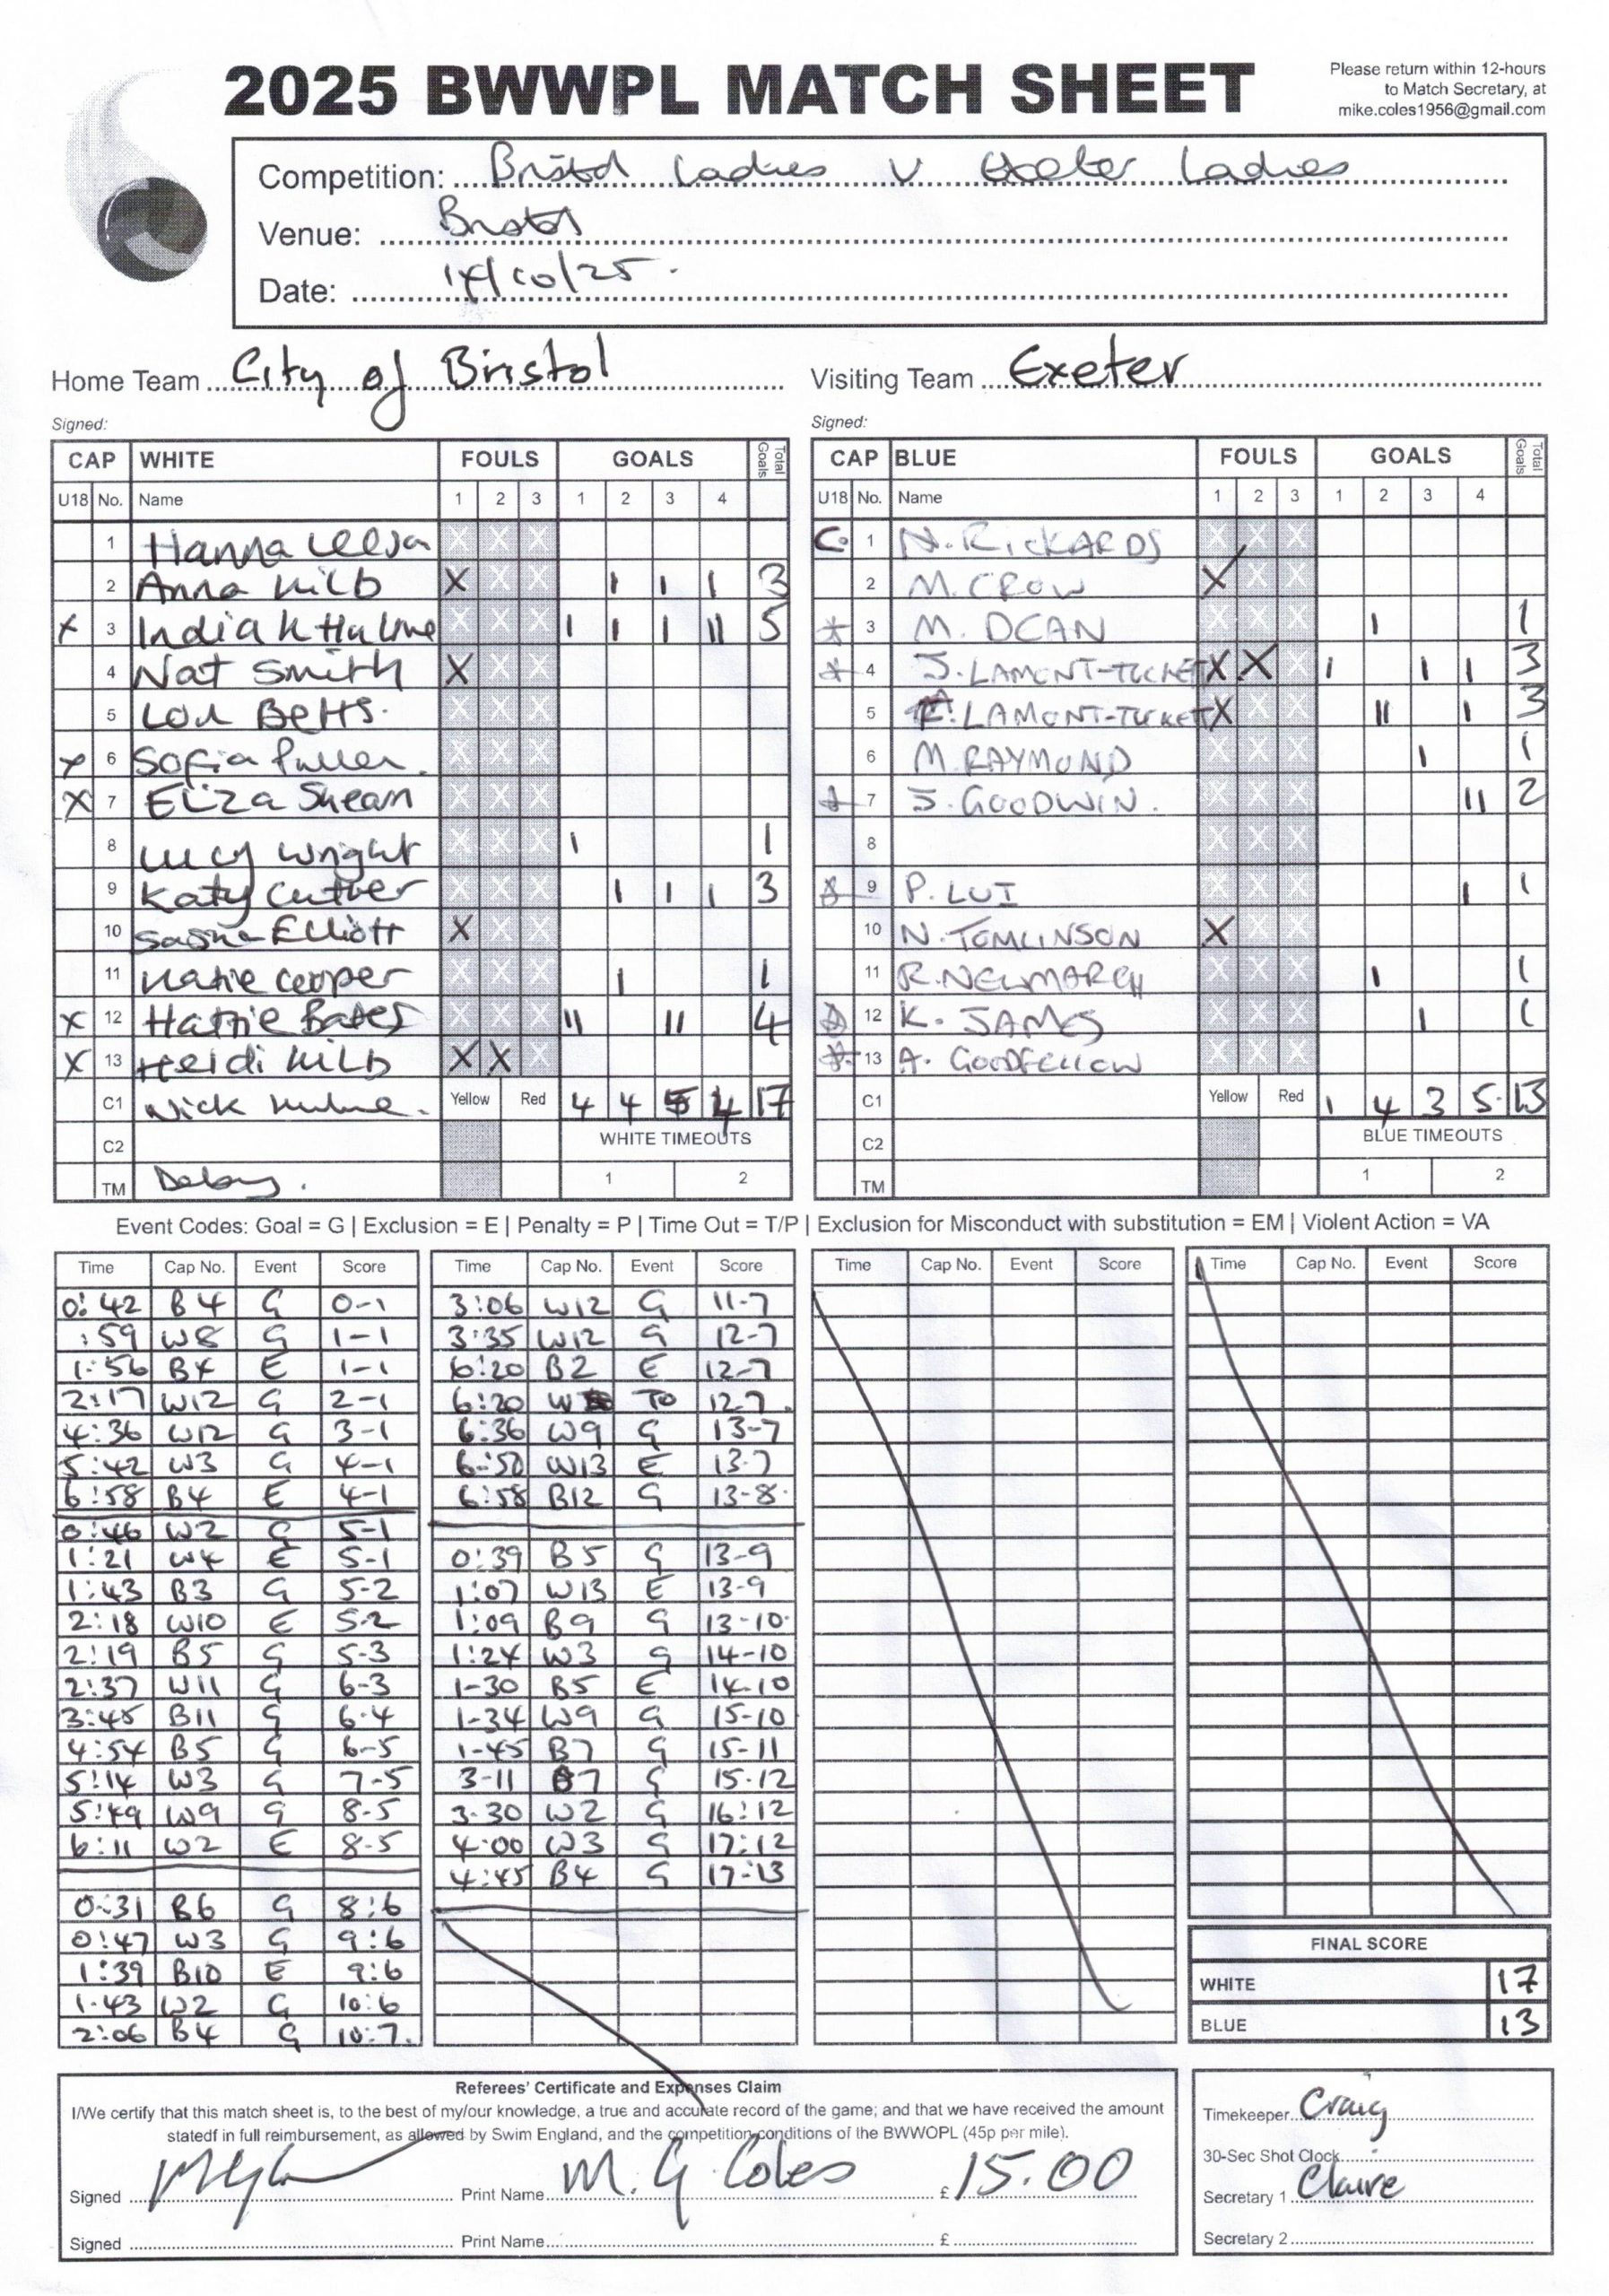 2025 BWWPL MATCH SHEET
Please return within 12-hours
to Match Secretary, at
mike.coles1956@gmail.com
Competition: Bristol Ladies v Exeter Ladies
Venue: Bristol
Date: 14/10/25.
Home Team City of Bristol
Visiting Team Exeter
Signed:
Signed:
CAP WHITE FOULS GOALS Total Goals
U18 No. Name 1 2 3 1 2 3 4
1 Hanna
2 Anna Milb X I I I 3
X 3 India I I I II 5
4 Nat Smith X
5 Lou Betts.
X 6 Sofia Puller.
X 7 Eliza Shean
8 Lucy Wright I 1
9 Katy Cutler I I I 3
10 Sasha Elliott X
11 Katie Cooper I 1
X 12 Hattie Bates II II 4
X 13 Heidi Milb X X
C1 Nick Hulme. Yellow Red 4 4 5 4 17
C2 WHITE TIMEOUTS
TM 1 2
CAP BLUE FOULS GOALS Total Goals
U18 No. Name 1 2 3 1 2 3 4
C. 1 N. RICKARDS
2 M. CROW X
* 3 M. DEAN I 1
* 4 J. LAMONT-TUCKETT X X I I I 3
5 LAMONT-TUCKETT X II I 3
6 M. RAYMOND I 1
* 7 J. GOODWIN. II 2
8
* 9 P. LUI I 1
10 N. TOMLINSON X
11 R. NEWMARCH I 1
* 12 K. JAMES I 1
* 13 A. GOODFELLOW
C1 Yellow Red 1 4 3 5. 13
C2 BLUE TIMEOUTS
TM 1 2
Event Codes: Goal = G | Exclusion = E | Penalty = P | Time Out = T/P | Exclusion for Misconduct with substitution = EM | Violent Action = VA
Time Cap No. Event Score
0:42 B4 G 0-1
:59 W8 G 1-1
1:56 B4 E 1-1
2:17 W12 G 2-1
4:36 W12 G 3-1
5:42 W3 G 4-1
6:58 B4 E 4-1
0:46 W2 G 5-1
1:21 W4 E 5-1
1:43 B3 G 5-2
2:18 W10 E 5-2
2:19 B5 G 5-3
2:37 W11 G 6-3
3:45 B11 G 6-4
4:54 B5 G 6-5
5:14 W3 G 7-5
5:49 W9 G 8-5
6:11 W2 E 8-5
0:31 B6 G 8:6
0:47 W3 G 9:6
1:39 B10 E 9:6
1-43 W2 G 10:6
2:06 B4 G 10:7.
Time Cap No. Event Score
3:06 W12 G 11-7
3:35 W12 G 12-7
6:20 B2 E 12-7
6:20 W TO 12-7.
6:36 W9 G 13-7
6:50 W13 E 13-7
6:58 B12 G 13-8.
0:39 B5 G 13-9
1:07 W13 E 13-9
1:09 B9 G 13-10.
1:24 W3 G 14-10
1-30 B5 E 14-10
1-34 W9 G 15-10
1-45 B7 G 15-11
3-11 B7 G 15-12
3-30 W2 G 16:12
4:00 W3 G 17:12
4:45 B4 G 17-13
Time Cap No. Event Score
Time Cap No. Event Score
FINAL SCORE
WHITE 17
BLUE 13
Referees' Certificate and Expenses Claim
I/We certify that this match sheet is, to the best of my/our knowledge, a true and accurate record of the game; and that we have received the amount
statedf in full reimbursement, as allowed by Swim England, and the competition conditions of the BWWOPL (45p per mile).
Signed Print Name M. G. Coles £ 15.00
Signed Print Name £
Timekeeper Craig
30-Sec Shot Clock
Secretary 1 Claire
Secretary 2